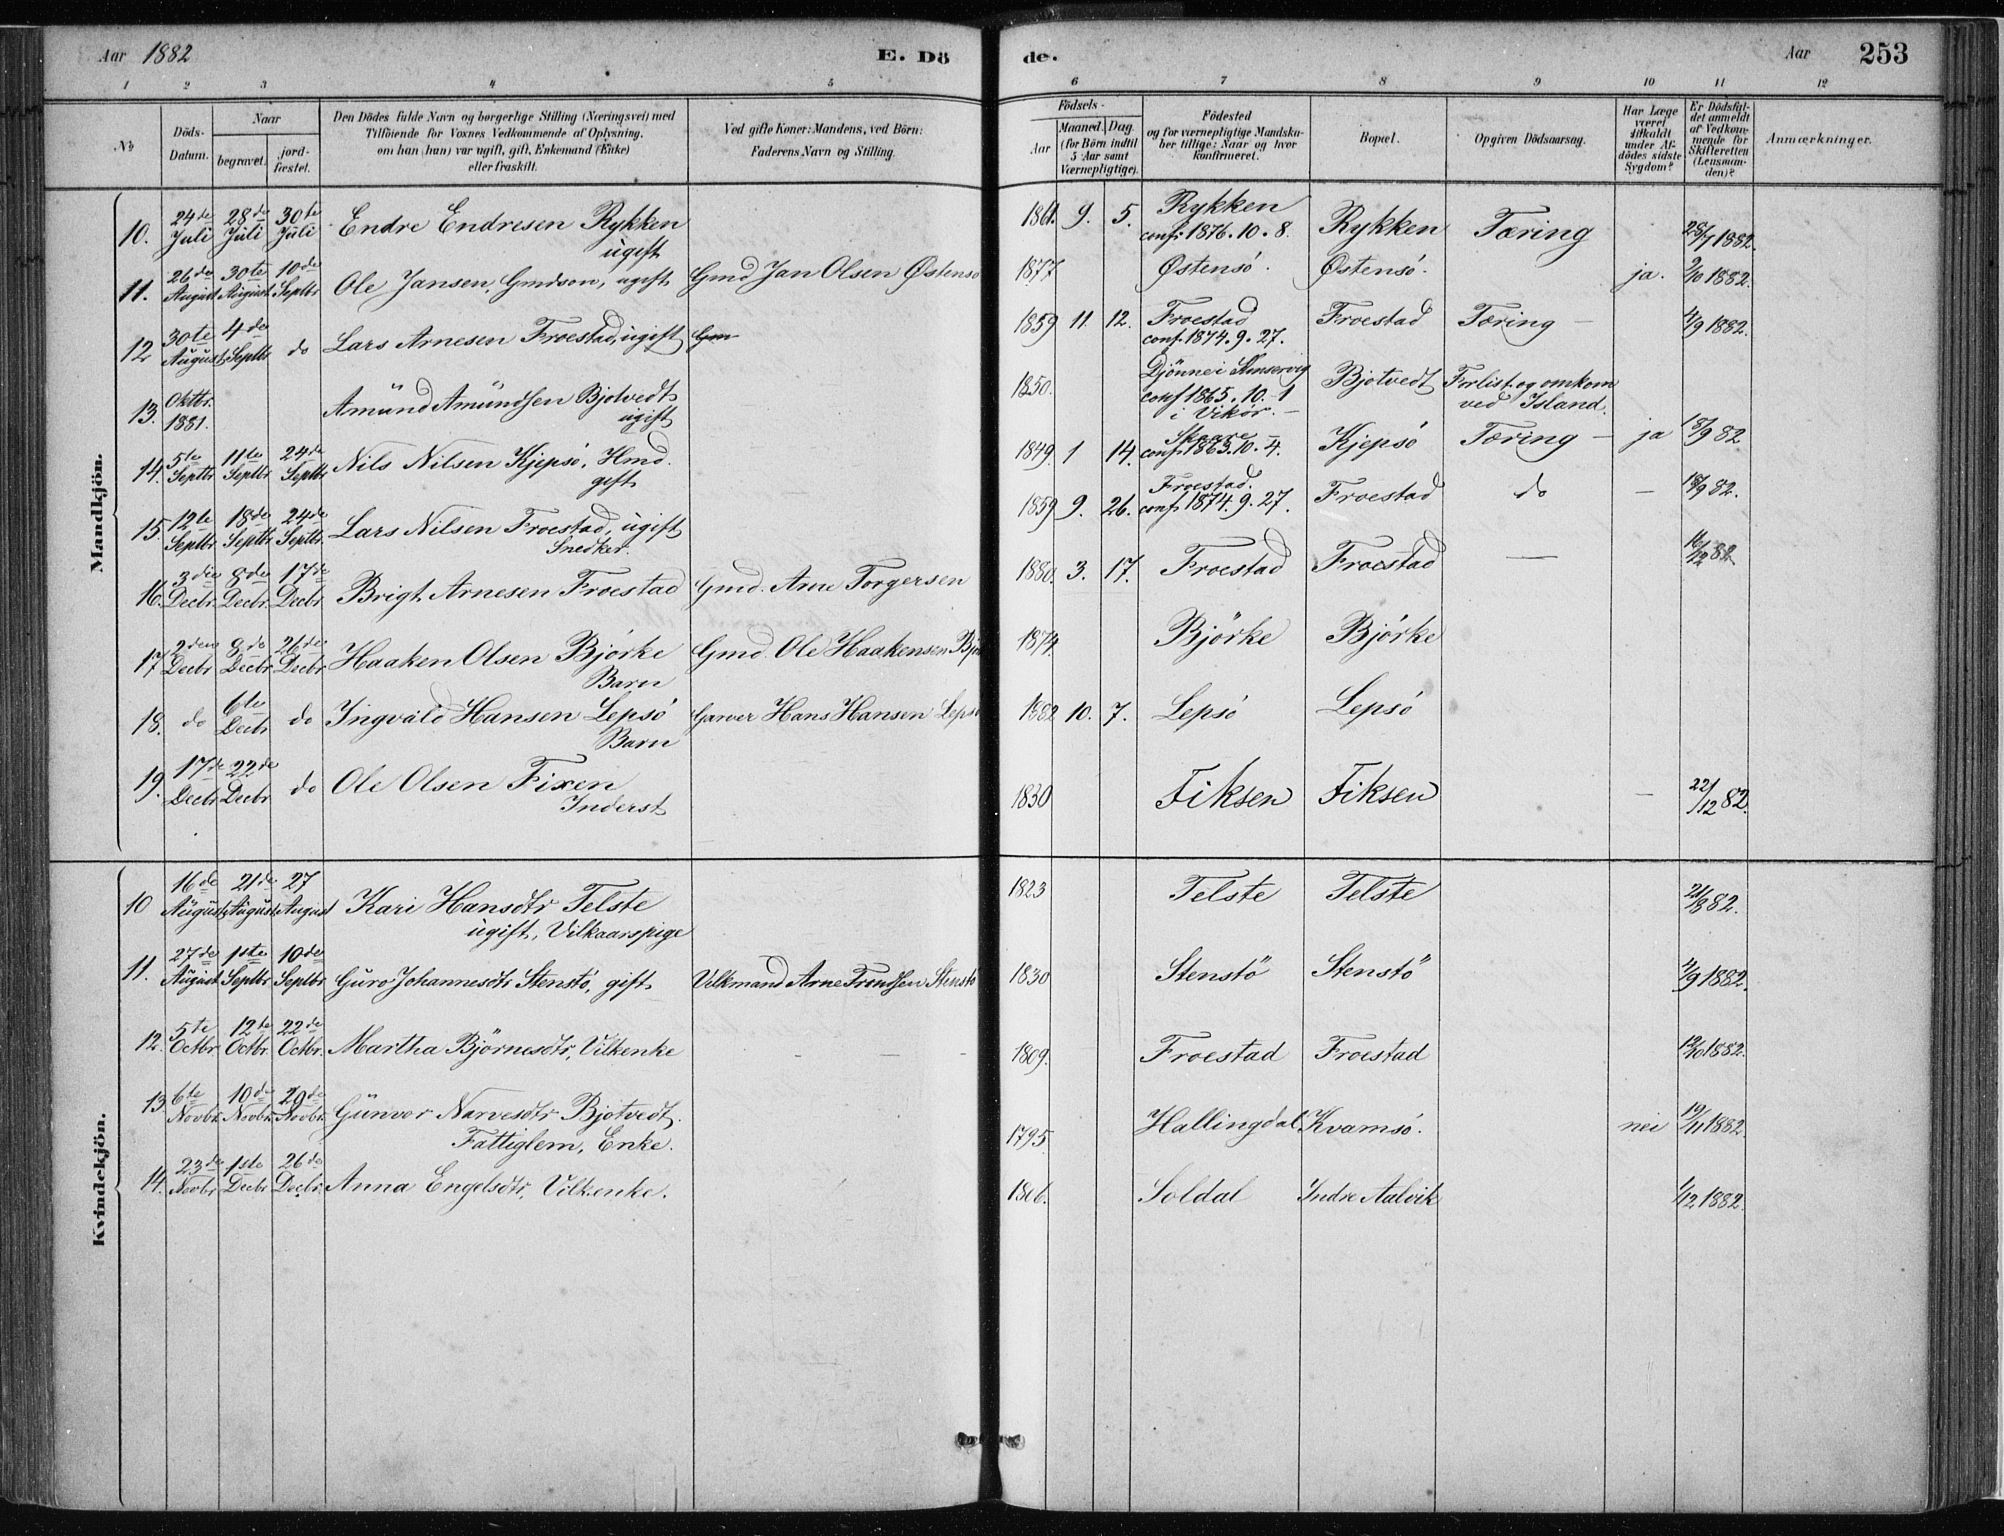 Aar 1882 E. Dö de. Aar 253
1 2 3 4 5 6 7 8 9 10 11 12
No. Döds-Datum. Naar begravet. jord-fæstet. Den Dödes fulde Navn og borgerlige Stilling (Næringsvei) med Tilföiende for Voxnes Vedkommende af Oplysning, om han (hun) var ugift, gift, Enkemand (Enke) eller fraskilt. Ved gifte Koner: Mandens, ved Börn: Faderens Navn og Stilling. Födsels- Aar Maaned. Dag. (for Börn indtil 5 Aar samt Værnepligtige). Födested og for værnepligtige Mandskaber tillige: Naar og hvor konfirmeret. Bopæl. Opgiven Dödsaarsag. Har Læge været tilkaldt under Afdödes sidste Sygdom? Er Dödsfaldet anmeldt af Vedkommende for Skifteretten (Lensmanden)? Anmærkninger.
Mandkjön.
10. 24de Juli 28de Juli 30te Juli Endre Endresen Rykken ugift 1861. 9. 5. Rykken conf. 1876. 10. 8. Rykken Tæring 28/7 1882.
11. 26de August 30te August 10de Septbr Ole Jansen, Gmdson, ugift Gmd Jan Olsen Østensö 1877 Østensö. Østensö. ja. 2/10 1882.
12 30te August 4de Septbr do Lars Arnesen Froestad, ugift Gm 1859 11. 12. Froestad conf. 1874. 9. 27. Froestad Tæring – 4/9 1882.
13. Oktbr. 1881. Amünd Amündsen Bjotvedt ugift 1850. Djönne i conf 1865. 10. 1 i Vikör. – Bjotvedt Forlist og omkom ved Island.
14. 5te Septbr 11te Septbr 24de Septbr Nils Nilsen Kjepsö, Hmd. gift 1849. 1 14. Skaare conf. 1863. 10. 4. Kjepsö Tæring – ja 18/9 82
15. 12te Septbr 18de Septbr 24de Septbr. Lars Nilsen Froestad, ugift Snedker. 1859 9. 26. Froestad. conf. 1874. 9. 27. Froestad do – 18/9 82.
16. 3die Decbr. 8de Decbr. 17de Decbr Brigt Arnesen Froestad Gmd. Arne Torgersen 1880. 3. 17. Froestad Froestad — 16/12 82
17 2den Decbr 8de Decbr 26de Decbr Haaken Olsen Björke Barn Gmd. Ole Haakensen Bjö 1874. Björke Björke
18. do 6te Decbr do Ingvald Hansen Lepsö Barn Garver Hans Hansen Lepsö 1882 10. 7. Lepsö Lepsö
19. 17de Decbr 22de Decbr do Ole Olsen Fixen Inderst 1830 Fiksen Fiksen – 22/12 82.
Kvindekjön.
10 16de August 21de August 27 August Kari Hansdtr Telste ugift, Vilkaarspige 1823 Telste Telste 21/8 82.
11. 27de August 1ste Septbr 10de Septbr Guro Johannesdtr Stenstö, gift Vilkmand Arne Trondsen Stenstö 1830 Stenstö Stenstö 4/9 1882.
12. 5te Octbr 12te Octbr 22de Octbr. Martha Björnesdtr, Vilkenke – – – 1809. Froestad Froestad 12/10 1882.
13. 6te Novbr. 10de Novbr 29de Novbr. Günvor Narvesdtr Bjotvedt. Fattiglem, Enke. 1795. Hallingdal Kvamsö. nei 19/11 1882.
14. 23de Novbr 1ste Decbr 26de Decbr. Anna Engelsdtr, Vilkenke. 1806. Soldal Indre Aalvik 1/12 1882.